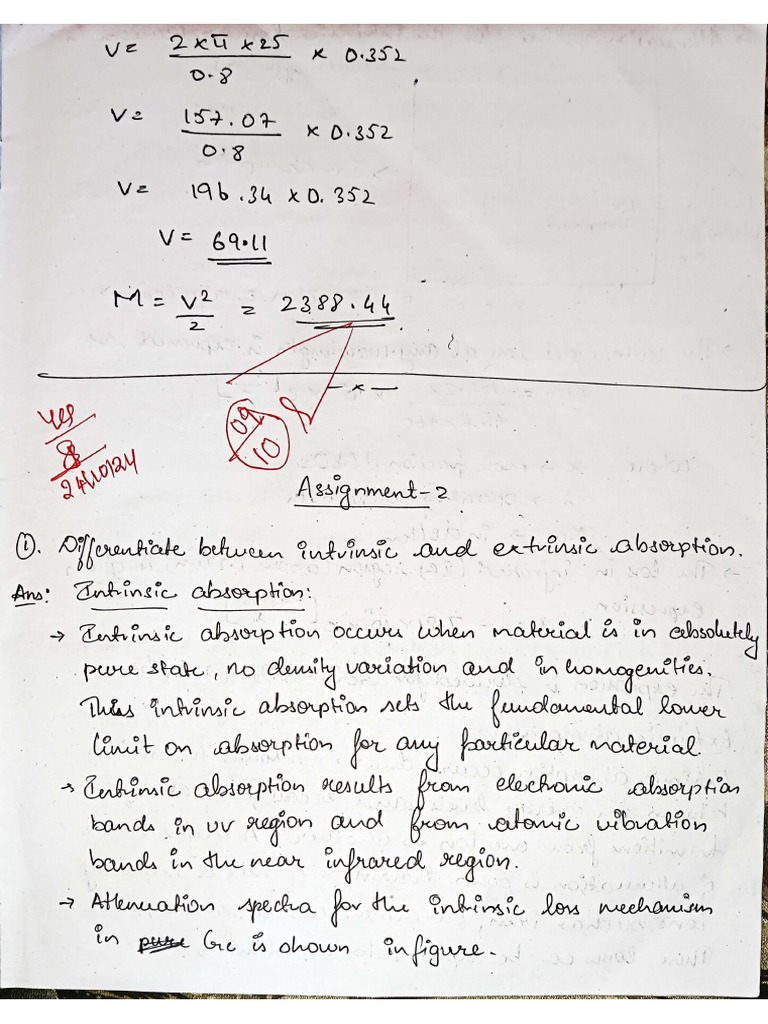 V = 2 × π × 25 / 0.8 × 0.352
V = 157.07 / 0.8 × 0.352
V = 196.34 × 0.352
V = 69.11
M = V² / 2 = 2388.44
— x —
09/10
24/10/24
Assignment-2
①. Differentiate between intrinsic and extrinsic absorption.
Ans: Intrinsic absorption:
→ Intrinsic absorption occurs when material is in absolutely
pure state, no density variation and inhomogenities.
Thus intrinsic absorption sets the fundamental lower
limit on absorption for any particular material.
→ Intrinsic absorption results from electronic absorption
bands in UV region and from atomic vibration
bands in the near infrared region.
→ Attenuation spectra for the intrinsic loss mechanism
in pure Ge is shown in figure.